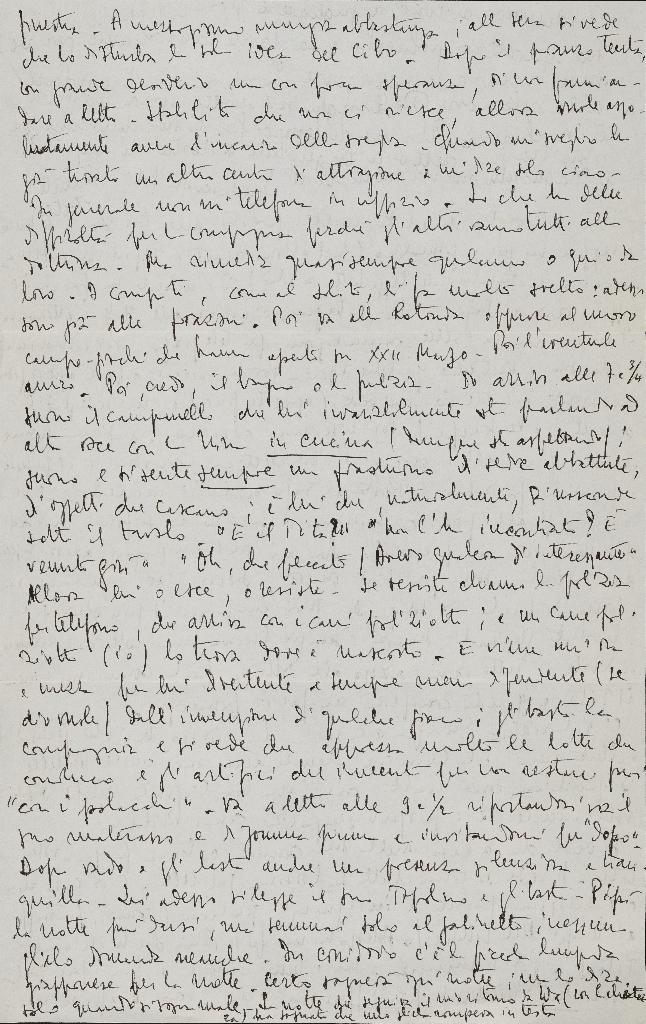 finestra. A mezzogiorno mangia abbastanza; alla sera si vede
che lo disturba la sola idea del cibo. Dopo il pranzo tenta,
con grande desiderio ma con poca speranza, di non farmi an-
dare a letto. Stabilito che non ci riesce, allora vuole asso-
lutamente avere l'incarico della sveglia. Quando mi sveglio ha
già trovato un altro centro d'attrazione e mi dice solo ciao.
In generale non mi telefona in ufficio. So che ha delle
difficoltà per la compagnia perché gli altri vanno tutti alla
dottrina. Ma rimedia quasi sempre qualcuno o qui o da
loro. I compiti, come al solito, li fa molto svelto: adesso
sono già alle frazioni. Poi va alla Rotonda oppure al nuovo
campo-giochi che hanno aperto in XXII Marzo. Poi l'eventuale
amico. Poi, credo, il bagno o la pulizia. Io arrivo alle 7 e 3/4
suono il campanello che lui invariabilmente sta parlando ad
alta voce con la Nina in cucina (dunque sta aspettando)!
suono e si sente sempre un frastuono di sedie abbattute,
d'oggetti che cascano; è lui che, naturalmente, si nasconde
sotto il tavolo. "E il Tita?!" "Non l'ha incontrato? È
venuto giù" "Oh, che peccato! Avevo qualcosa di interessante"
Allora lui o esce, o resiste. Se resiste chiamo la polizia
per telefono, che arriva con i cani poliziotti; e un cane pol-
ziotto (io) lo trova dove è nascosto. E viene un'ora
e mezza per lui divertente e sempre meno dipendente (se
dio vuole) dall'invenzione di qualche gioco; gli basta la
compagnia e si vede che apprezza molto le lotte che
conduco e gli artifici che invento per non restare però
"con i polacchi". Va a letto alle 9 e 1/2 riportandosi via il
suo materasso e di gomma piuma e invitandomi per "dopo".
Dopo vado e gli basta anche una presenza silenziosa e tran-
quilla. Lui adesso rilegge il suo Topolino e gli basta. Pipì
la notte può darsi, ma semmai solo al gabinetto; nessuno
glielo domanda neanche. In corridoio c'è la piccola lampada
giapponese per la notte. Certo sognerà ogni notte, ma lo dice
solo quando si sogna male. La notte che seguiva il mio ritorno da
ha sognato che uno gli rompeva in testa